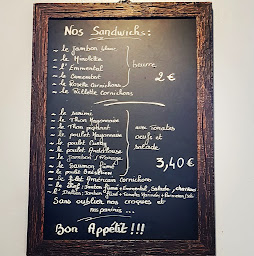 Nos Sandwichs:
- le Jambon blanc
- le Mirolette
- l'Emmental
- le Camembert
- la Rosette Cornichons
- la Rillette Cornichons
beurre
2 €
- le surimi
- le Thon Mayonnaise
- le Thon piquant
- le poulet Mayonnaise
- le poulet Curry
- le poulet Andalouse
- le Jambon / fromage
- le Saumon fumé
avec Tomates
oeufs et
salade
3,40 €
- le poulet
- le filet Américain Cornichons
- le Chef: Jambon fumé + Emmental, salade,
- l'Italien: Jambon fumé + Tomates
Sans oublier nos croques et
nos paninis ...
Bon Appétit !!!